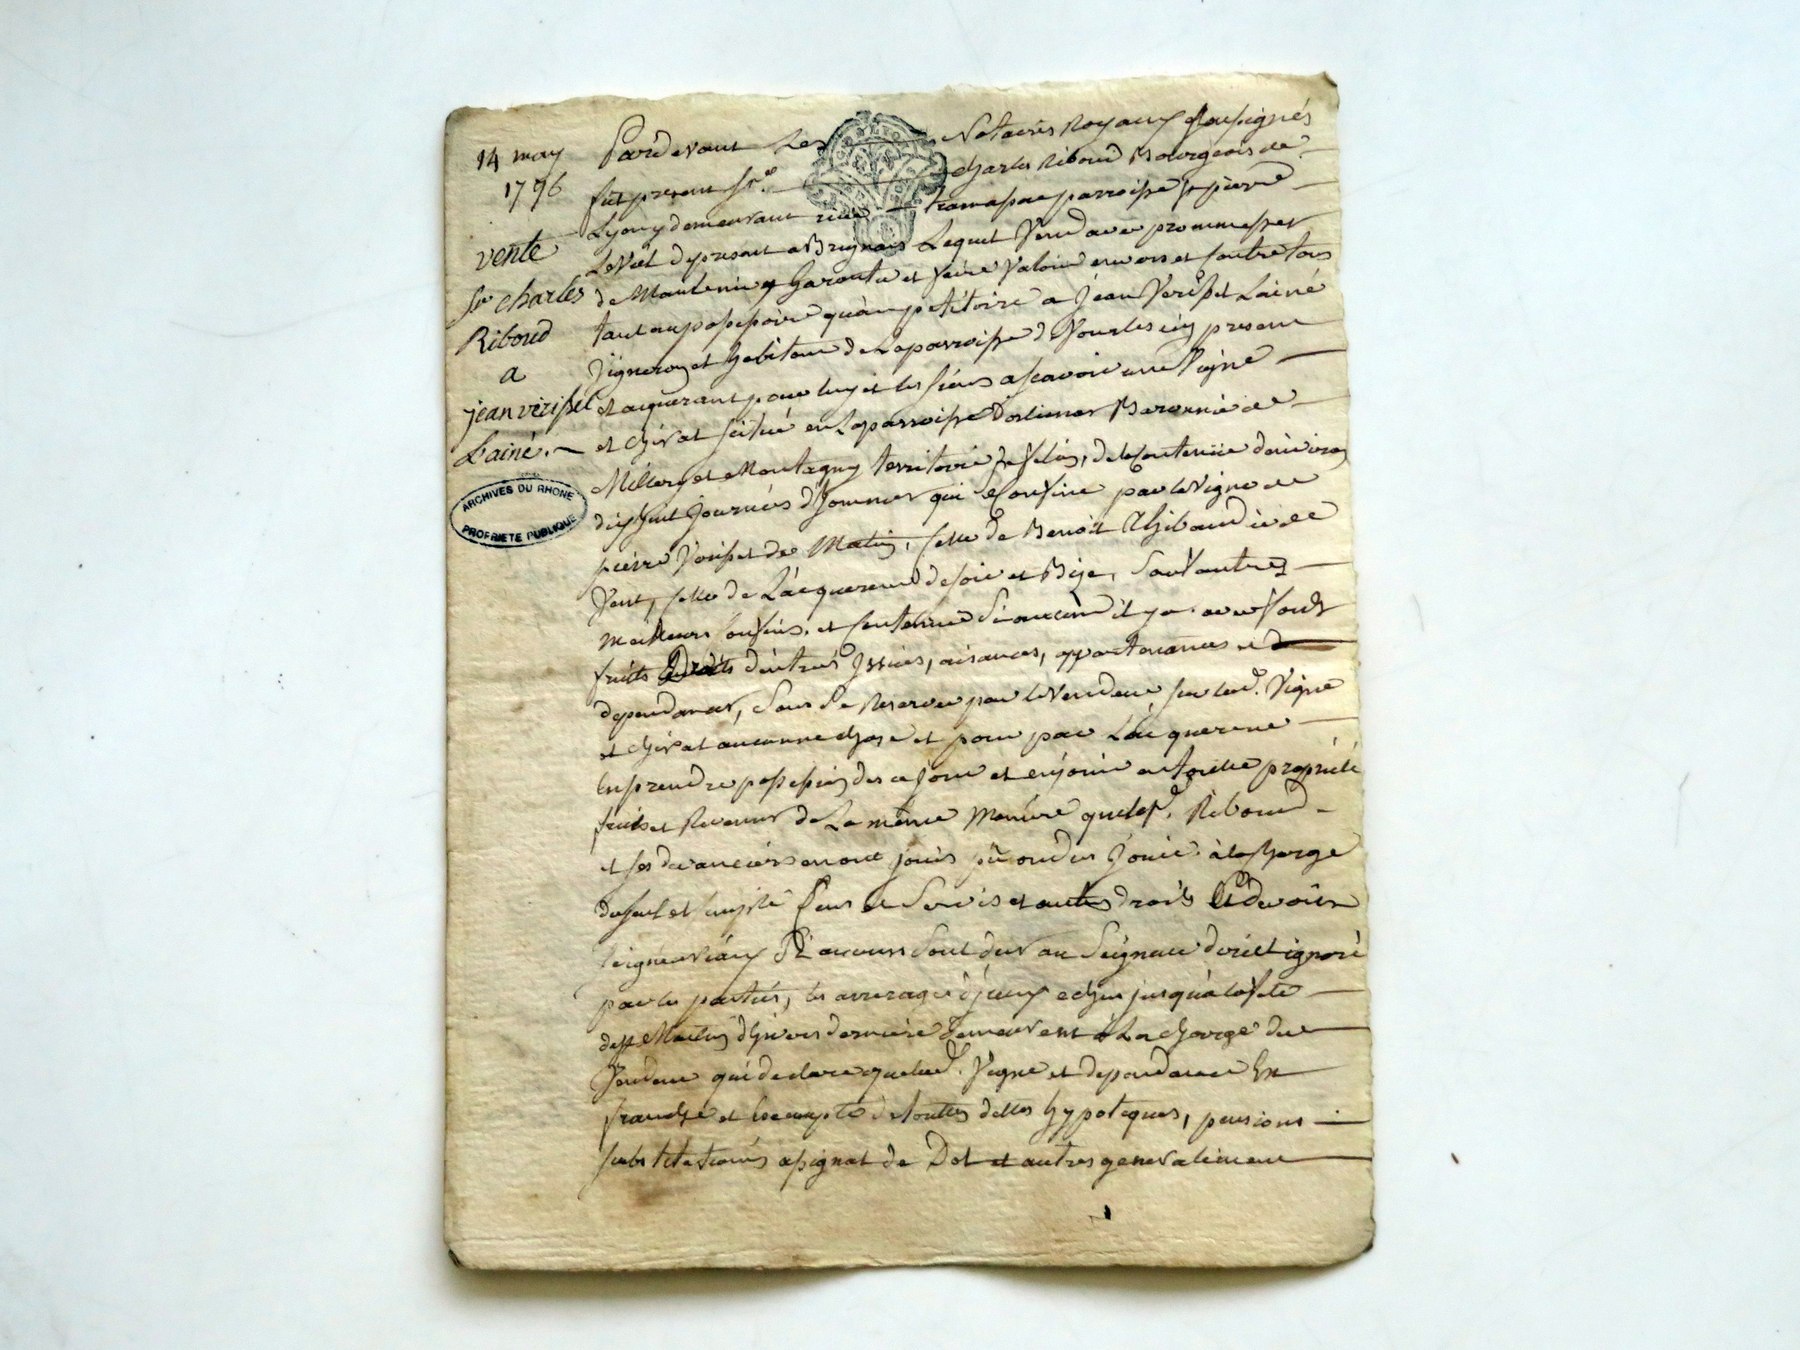 14 may
1756
vente
Sr charles
Riboud
a
jean verisset
L'ainé.
ARCHIVES DU RHONE
PROPRIETE PUBLIQUE
Pardevant Les Notaires Royaux soussignés
fut present Sr. Charles Riboud Bourgeois de
Lyon y demeurant rue parroisse st pierre
Le Viel de present a Brignais Lequel Vend avec prommesses
de Maintenir Garantir et faire Valoir envers et contre tous
tant au possessoire qu'au petitoire a Jean Verisset Lainé
Vigneron et habitant de La parroisse de Vourles icy present
et aquerant pour luy et les siens a scavoir une Vigne
et chirat scitué en La parroisse D'orlienas Baronnie de
Millery et Montagny territoire de de La Contenüe d'environ
dix huit Journées d'hommes qui Se Confine par la Vigne de
pierre de Matin, Celle de Benoit Thibaudier de
Vent, Celle de L'acquereur de Soir et Bize, Sauf autres
Meilleurs Confins. et Contenue Si aucuns il y a. avec Fonds
fruits Droits d'entrées Issües, aisances, appartenances et
dependances, Sans Se Reserver par le Vendeur sur lad. Vigne
et chirat aucune chose et pour par L'acquereur
En prendre possession des ce Jour et en jouir en toutte proprieté
fruits et Revenus de La même Maniere que led. Sr. Riboud
et ses devanciers en ont jouis pû ou dus Jouir à la Charge
du Cens et Servis et autres droits Et devoirs
seigneuriaux Si aucuns Sont dus au Seigneur direct ignoré
par les parties, les arrerages d'jceux echus jusqu'à la fete
de st Martin d'hivers derniere Demeurent à La charge du
Vendeur qui declare que lad. Vigne et dependance Est
franche et Exempte de touttes dettes hypoteques, pensions
substitutions assignat de Dot et autres generalement